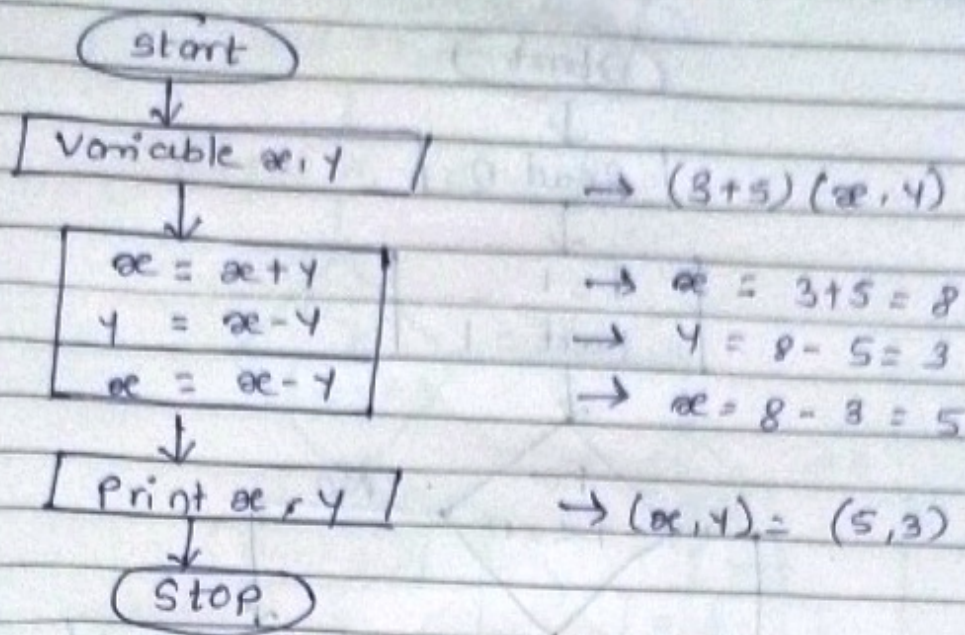 Start
Variable x, y
→ (3+5) (x, y)
x = x+y
→ x = 3+5 = 8
y = x-y
→ y = 8-5=3
x = x-y
→ x = 8-3=5
Print x, y
→ (x, y) = (5,3)
Stop